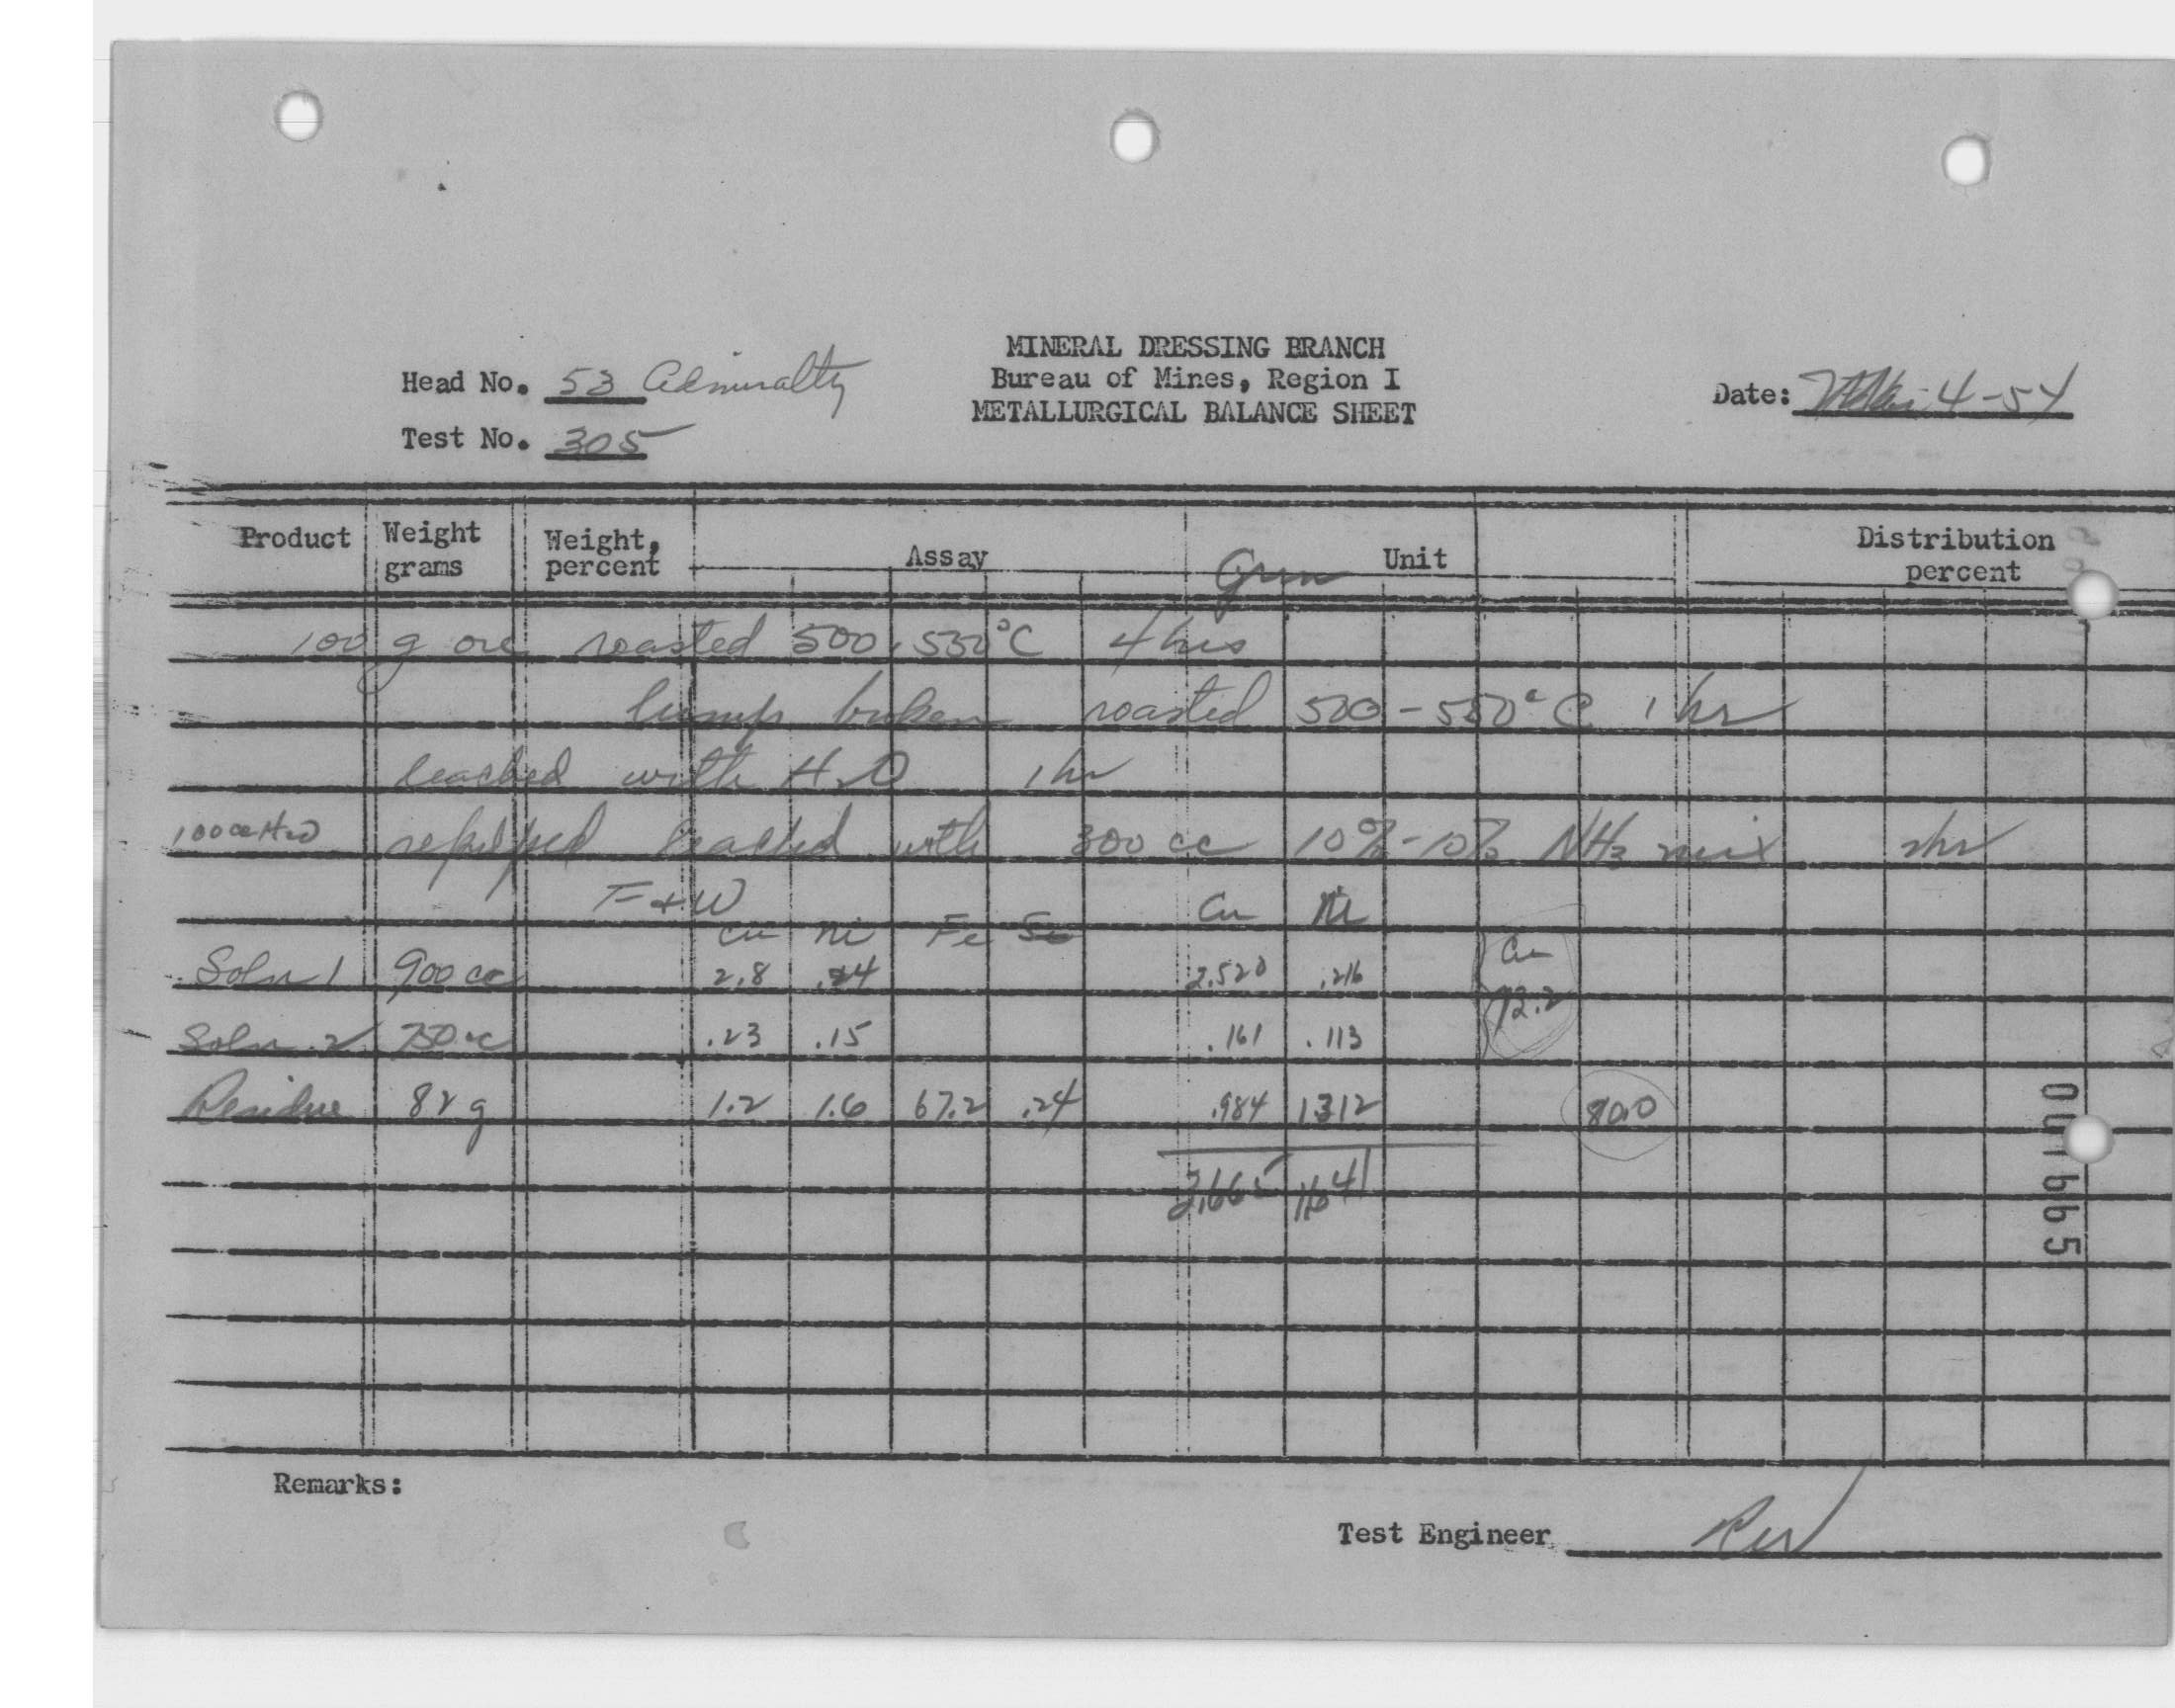 MINERAL DRESSING BRANCH
Head No. 53 Admiralty Bureau of Mines, Region I Date: 4-54
METALLURGICAL BALANCE SHEET
Test No. 305
Product Weight grams Weight, percent Assay Grm Unit Distribution percent
100 g ore roasted 500-550°C 4 hrs
lump broken roasted 500-550°C 1 hr
leached with H2O 1 hr
100 cc H2O repulped leached with 300 cc 10%-10% NH3 mix 2hr
F+W Cu Ni
Cu Ni Fe Cu
Soln 1 900 cc 2.8 .24 2.520 .216 72.2
Soln 2 750 cc .23 .15 .161 .113
Residue 82 g 1.2 1.6 67.2 .24 .984 1.312 80.0
3.665 1.641
001665
Remarks:
Test Engineer